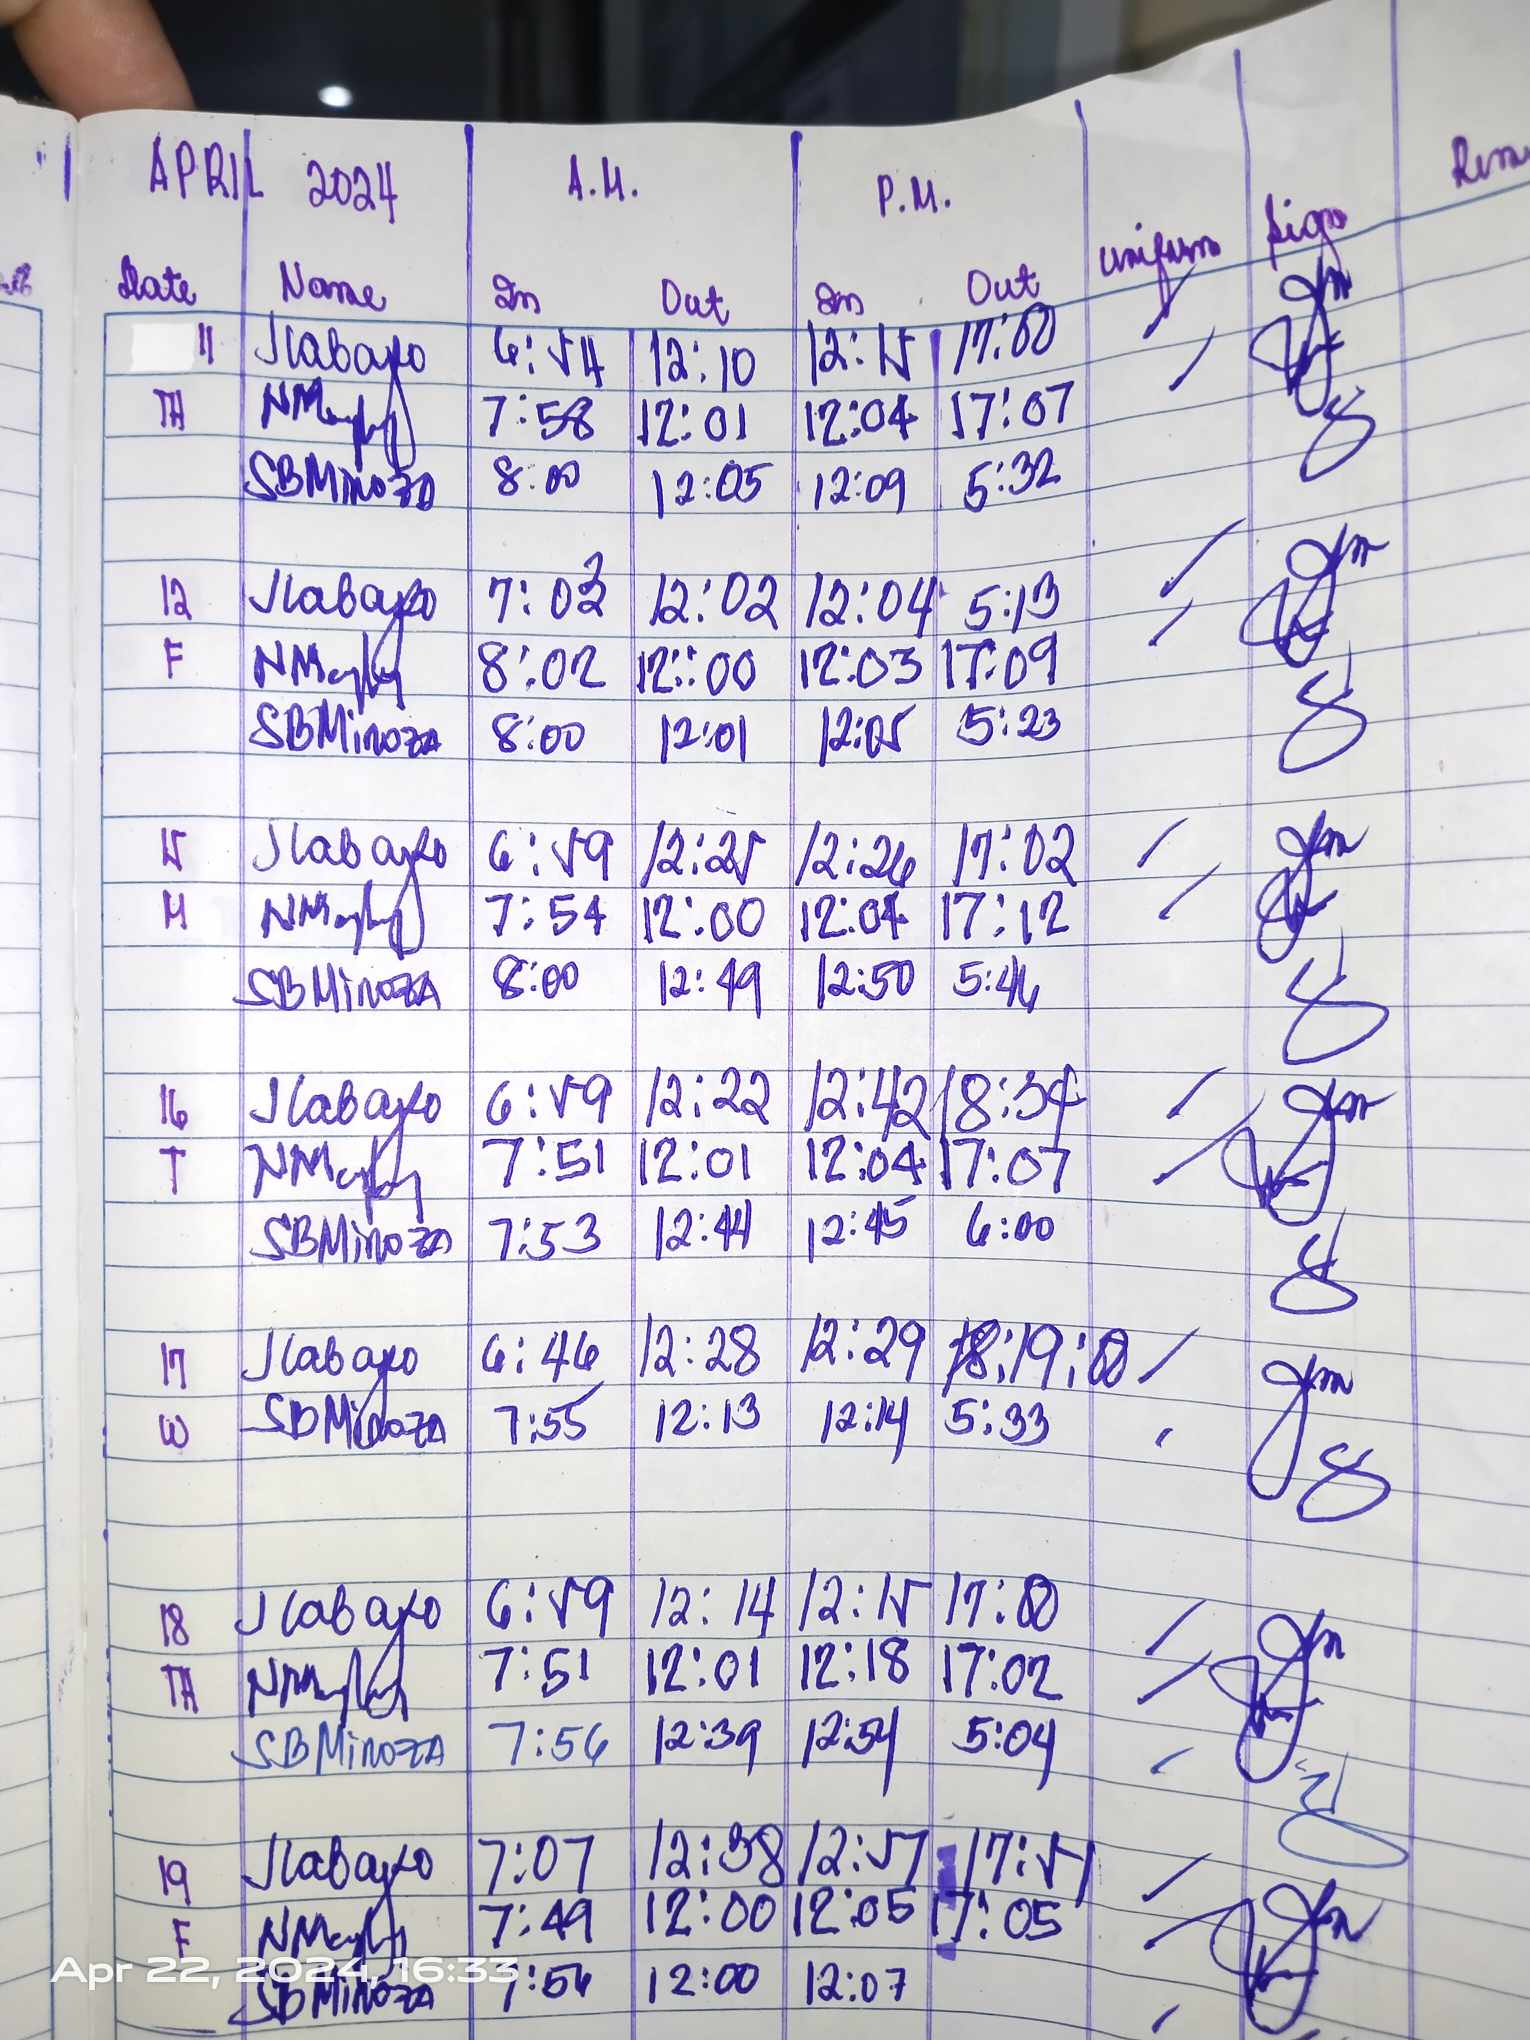 APRIL 2024 A.M. P.M.
Date Name In Out In Out uniform Sign
11 JLabayo 6:54 12:10 12:15 17:00
TH 7:58 12:01 12:04 17:07
SBMinoza 8:00 12:05 12:09 5:32
12 JLabayo 7:03 12:02 12:04 5:13
F 8:02 12:00 12:03 17:09
SBMinoza 8:00 12:01 12:05 5:23
15 JLabayo 6:59 12:25 12:26 17:02
M 7:54 12:00 12:04 17:12
SBMinoza 8:00 12:49 12:50 5:46
16 JLabayo 6:59 12:22 12:42 18:34
T 7:51 12:01 12:04 17:07
SBMinoza 7:53 12:44 12:45 6:00
17 JLabayo 6:46 12:28 12:29
W SBMinoza 7:55 12:13 12:14 5:33
18 JLabayo 6:59 12:14 12:15 17:00
TH 7:51 12:01 12:18 17:02
SBMinoza 7:56 12:39 12:54 5:04
19 JLabayo 7:07 12:38 12:57 17:51
F 7:49 12:00 12:05 17:05
Apr 22, 2024, 16:33
SBMinoza 7:56 12:00 12:07